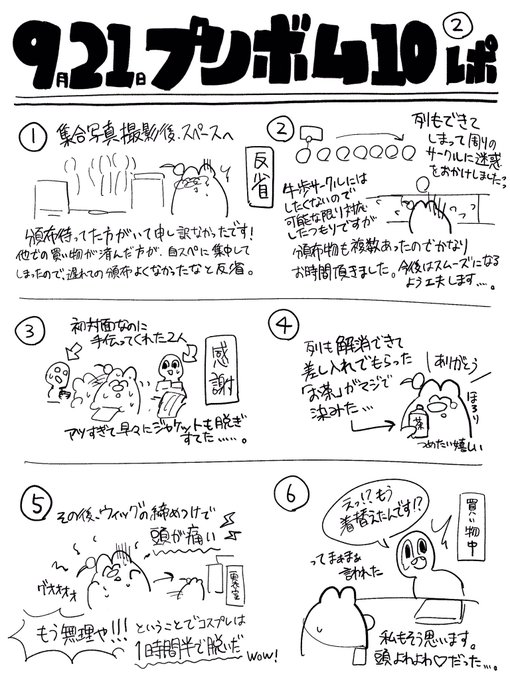 9月21日プリボム10レポ②
①
集合写真撮影後、スペースへ
反省
頒布待ってた方がいて申し訳なかったです!
他での買い物が済んだ方が、自スペに集中して
しまったので、遅れての頒布よくなかったなと反省。
②
列もできて
しまって周りの
サークルに迷惑
をおかけしましたっっ
牛歩サークルには
したくないので
可能な限り対応
したつもりですが
頒布物も複数あったのでかなり
お時間頂きました。今後はスムーズになる
よう工夫します…。
③
初対面なのに
手伝ってくれた2人
感謝
アツすぎて早々にジャケットも脱ぎ
すてた……。
④
列も解消できて
差し入れでもらった
「お茶」がマジで
染みた…
ありがとう
ほろり
茶
つめたい嬉しい
⑤
その後、ウィッグの締めつけで
頭が痛い
ヴオオオオ
更衣室
もう無理や!!!
ということでコスプレは
1時間半で脱いだ
WOW!
⑥
えっ!?もう
着替えたんです!?
買い物中
ってまぁまぁ
言われた
私もそう思います。
頭よわよわ♡だった…。